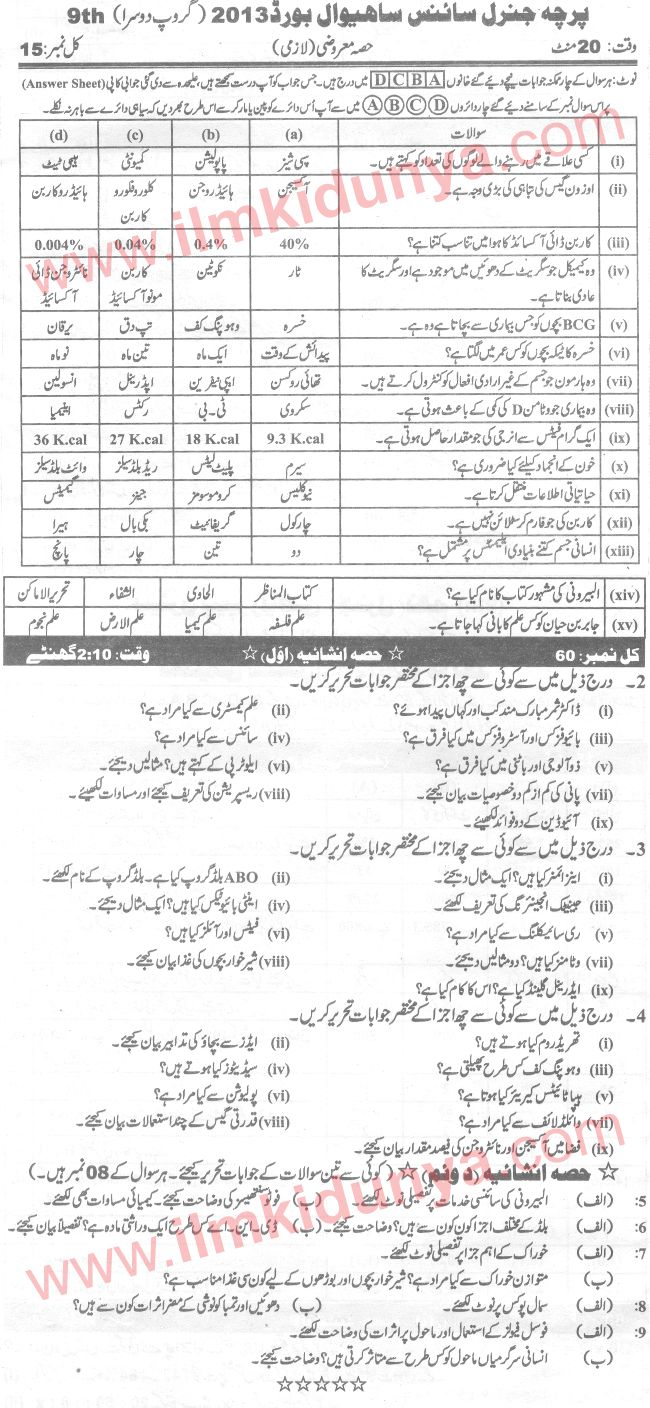 پرچہ جنرل سائنس ساھیوال بورڈ 2013 (گروپ دوسرا) 9th
وقت: 20 منٹ حصہ معروضی (لازمی) کل نمبر: 15
نوٹ: ہر سوال کے چار ممکنہ جوابات نیچے دیئے گئے خانوں D C B A میں درج ہیں۔ جس جواب کو آپ درست سمجھتے ہیں، علیحدہ سے دی گئی جوابی کاپی (Answer Sheet)
پر اس سوال نمبر کے سامنے دیئے گئے چار دائروں A B C D میں سے آپ اُس دائرے کو پین یا مارکر سے اس طرح بھر دیں کہ سیاہی دائرے سے باہر نہ نکلے۔
سوالات (a) (b) (c) (d)
(i) کسی علاقے میں رہنے والے لوگوں کی تعداد کو کہتے ہیں۔ سپی شیز پاپولیشن کمیونٹی ہیبی ٹیٹ
(ii) اوزون گیس کی تباہی کی بڑی وجہ ہے۔ آکسیجن ہائیڈروجن کلوروفلورو کاربن ہائیڈروکاربن
(iii) کاربن ڈائی آکسائڈ کا ہوا میں تناسب کتنا ہے؟ 40% 0.4% 0.04% 0.004%
(iv) وہ کیمیکل جو سگریٹ کے دھوئیں میں موجود ہے اور سگریٹ کا عادی بناتا ہے۔ ٹار نکوٹین کاربن مونوآکسائیڈ نائٹروجن ڈائی آکسائیڈ
(v) BCG بچوں کو جس بیماری سے بچاتا ہے وہ ہے۔ خسرہ وہوپنگ کف تپ دق یرقان
(vi) خسرہ کا ٹیکہ بچوں کو کس عمر میں لگتا ہے؟ پیدائش کے وقت ایک ماہ تین ماہ نو ماہ
(vii) وہ ہارمون جو جسم کے غیر ارادی افعال کو کنٹرول کرتے ہیں۔ تھائی روکسن ایپی نیفرین ایڈرینل انسولین
(viii) وہ بیماری جو وٹامن D کی کمی کے باعث ہوتی ہے۔ سکروی ٹی۔بی رکٹس اینیمیا
(ix) ایک گرام فیٹس سے انرجی کی جو مقدار حاصل ہوتی ہے۔ 9.3 K.cal 18 K.cal 27 K.cal 36 K.cal
(x) خون کے انجماد کیلئے کیا ضروری ہے؟ سیرم پلیٹ لیٹس ریڈ بلڈ سیلز وائٹ بلڈ سیلز
(xi) حیاتیاتی اطلاعات منتقل کرتا ہے۔ نیوکلیس کروموسومز جینز گیمیٹس
(xii) کاربن کی جو فارم کرسٹلائن نہیں ہے۔ چارکول گریفائیٹ بکی بال ہیرا
(xiii) انسانی جسم کتنے بنیادی ایلیمنٹس پر مشتمل ہے؟ دو تین چار پانچ
(xiv) البیرونی کی مشہور کتاب کا نام کیا ہے؟ کتاب المناظر الحاوی الشفاء تحریر الاماکن
(xv) جابر بن حیان کو کس علم کا بانی کہا جاتا ہے۔ علم فلسفہ علم کیمیا علم الارض علم نجوم
کل نمبر: 60 ☆ حصہ انشائیہ (اوّل) ☆ وقت: 2:10 گھنٹے
2۔ درج ذیل میں سے کوئی سے چھ اجزا کے مختصر جوابات تحریر کریں۔
(i) ڈاکٹر ثمر مبارک مند کب اور کہاں پیدا ہوئے؟ (ii) علم کیمسٹری سے کیا مراد ہے؟
(iii) بائیو فزکس اور آسٹرو فزکس میں کیا فرق ہے؟ (iv) سائنس سے کیا مراد ہے؟
(v) زوآلوجی اور باٹنی میں کیا فرق ہے؟ (vi) ایلوٹرپی کسے کہتے ہیں؟ مثالیں دیجئے۔
(vii) پانی کی کم از کم دو خصوصیات بیان کیجئے۔ (viii) ریسپریشن کی تعریف کیجئے اور مساوات لکھیئے۔
(ix) آئیوڈین کے دو فوائد لکھیئے۔
3۔ درج ذیل میں سے کوئی سے چھ اجزا کے مختصر جوابات تحریر کریں۔
(i) اینزائمز کیا ہیں؟ ایک مثال دیجئے۔ (ii) ABO بلڈ گروپ کیا ہے۔ بلڈ گروپ کے نام لکھیئے۔
(iii) جینیٹک انجینئرنگ کی تعریف لکھیئے۔ (iv) اینٹی بائیوٹیکس کیا ہیں؟ ایک مثال دیجئے۔
(v) ری سائیکلنگ سے کیا مراد ہے؟ (vi) فیٹس اور آئلز کیا ہیں؟
(vii) وٹامنز کیا ہیں؟ دو مثالیں دیجئے۔ (viii) شیر خوار بچوں کی غذا بیان کیجئے۔
(ix) ایڈرینل گلینڈ کیا ہے؟ اس کا کام کیا ہے؟
4۔ درج ذیل میں سے کوئی سے چھ اجزا کے مختصر جوابات تحریر کریں۔
(i) تھریڈ روم کیا ہوتے ہیں؟ (ii) ایڈز سے بچاؤ کی تدابیر بیان کیجئے۔
(iii) وہوپنگ کف کس طرح پھیلتی ہے؟ (iv) سیڈیٹوز کیا ہوتے ہیں؟
(v) ہیپاٹائیٹس کیریئر کیا ہوتا ہے؟ (vi) پولیوشن سے کیا مراد ہے؟
(vii) وائلڈ لائف سے کیا مراد ہے؟ (viii) قدرتی گیس کے چند استعمالات بیان کیجئے۔
(ix) فضا میں آکسیجن اور نائٹروجن کی فیصد مقدار بیان کیجئے۔
☆ حصہ انشائیہ (دوئم) ☆ (کوئی سے تین سوالات کے جوابات تحریر کیجئے۔ ہر سوال کے 08 نمبر ہیں۔)
5: (الف) البیرونی کی سائنسی خدمات پر تفصیلی نوٹ لکھیئے۔ (ب) فوٹوسنتھیسز کی وضاحت کیجئے۔ کیمیائی مساوات بھی لکھیئے۔
6: (الف) بلڈ کے مختلف اجزا کون کون سے ہیں؟ وضاحت کیجئے۔ (ب) ڈی۔این۔اے کس طرح ایک وراثتی مادہ ہے؟ تفصیلاً بیان کیجئے۔
7: (الف) خوراک کے اہم جز پر تفصیلی نوٹ لکھیئے۔
(ب) متوازن خوراک سے کیا مراد ہے؟ شیر خوار بچوں اور بوڑھوں کے لیے کون سی غذا مناسب ہے؟
8: (الف) سمال پوکس پر نوٹ لکھیئے۔ (ب) دھوئیں اور تمباکو نوشی کے مضر اثرات کون سے ہیں؟
9: (الف) فوسل فیولز کے استعمال اور ماحول پر اثرات کی وضاحت کیجئے۔
(ب) انسانی سرگرمیاں ماحول کو کس طرح سے متاثر کرتی ہیں؟ وضاحت کیجئے۔
☆☆☆☆☆
www.ilmkidunya.com
www.ilmkidunya.com